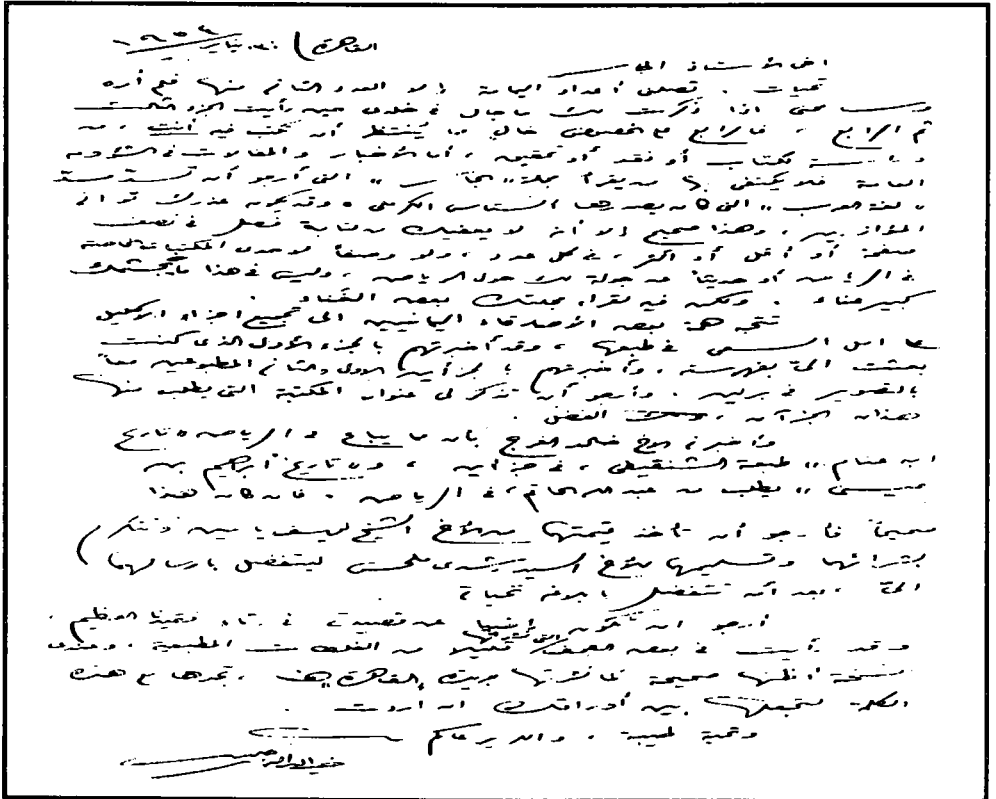 القاهرة) ٣٠ يناير ١٩٥٤
أخي الأستاذ الجـ
تحيات . تصلني أعداد اليمامة إلا العدد الثاني منها فلم أره
إذا ذكرت لك ما جال في خلدي حين رأيت الجزء الثالث
ثم الرابع ، فالرابع على الخصوص خال مما يُنتظر أن تكتب فيه أنت ، من
دراسة لكتاب أو نقد أو تحقيق ، أما الأخبار والمقالات في الشؤون
العامة فلا يكتفي بها من يقرأ مجلة التي أرجو أن تسد مسدّ
،، لغة العرب ،، التي كان يصدرها انستاس الكرملي ، وقد يكون عذرك تواني
المؤازرين ، وهذا صحيح إلا أنه لا يعفيك من كتابة فصل في نصف
صفحة أو أقل أو أكثر ، في كل عدد ، ولا وصفاً لإحدى المكتبات الخاصة
في الرياض أو حديثاً عن جولة لك حول الرياض ، وليس في هذا ما يجشمك
كبير عناء . ولكن فيه لقراء مجلتك بعض الغَناء .
تتجه همة بعض الأصدقاء اليمانيين إلى تجميع أجزاء الإكليل
على أمل السعي في طبعها ، وقد أخبرتهم بالجزء الأول الذي كنت
بعثت إليّ بفهرسته . وأخبرتهم بالجزأين الأول والثاني المطبوعين معاً
بالتصوير في برلين . وأرجو أن تذكر لي عنوان المكتبة التي يطلب منها
هذان الجزآن ، ولك الفضل .
وأخبرني الأخ خالد الفرج بأن مما يباع في الرياض ،، تاريخ
ابن غنام ،، طبعة الشنقيطي ، في جزأين ، وأن تاريخ إبراهيم بن
عيسى ،، يطلب من عبد الله الحاتم ، في الرياض . فإن كان هذا
صحيحاً فأرجو أن تأخذ قيمتها من الأخ الشيخ يوسف ياسين وتتكرم
بشرائها وتسليمها للأخ السيد رشدي ملحس ليتفضل بإرسالهما
إليّ ، بعد أن تتفضل بإبلاغه تحياتي
أرجو أن تكون راضياً عن قصيدتي في رثاء فقيدنا العظيم .
وقد رأيت في بعض الصحف التي نشرتها قليلاً من الغلطات المطبعية ، وعندي
نسخة أظنها صحيحة مما نشرتها جريدة القاهرة هنا ، تجدها مع هذه
الكلمة لتجعلها بين أوراقك إن أردت .
وتحية طيبة ، والله يرعاكم
خير الدين الزركلي